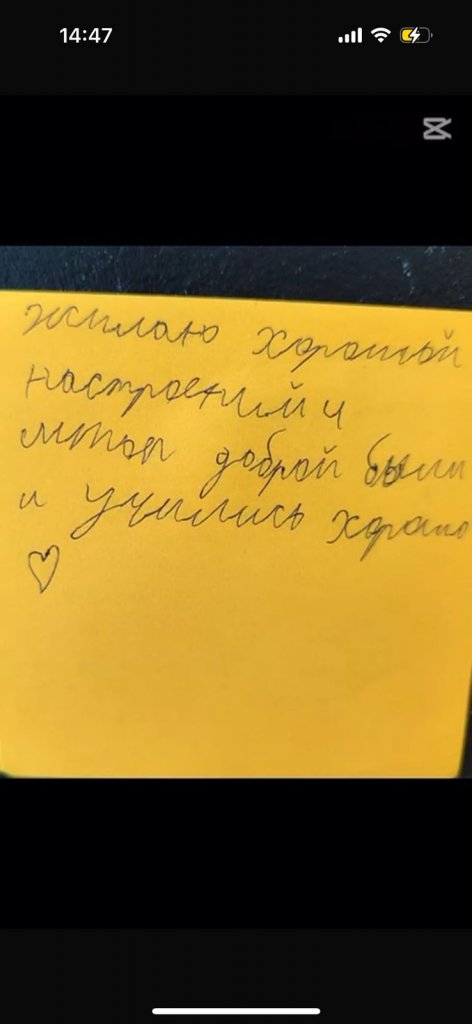 14:47
жилаю хороший
настроений и
доброй были
и учились хорошо